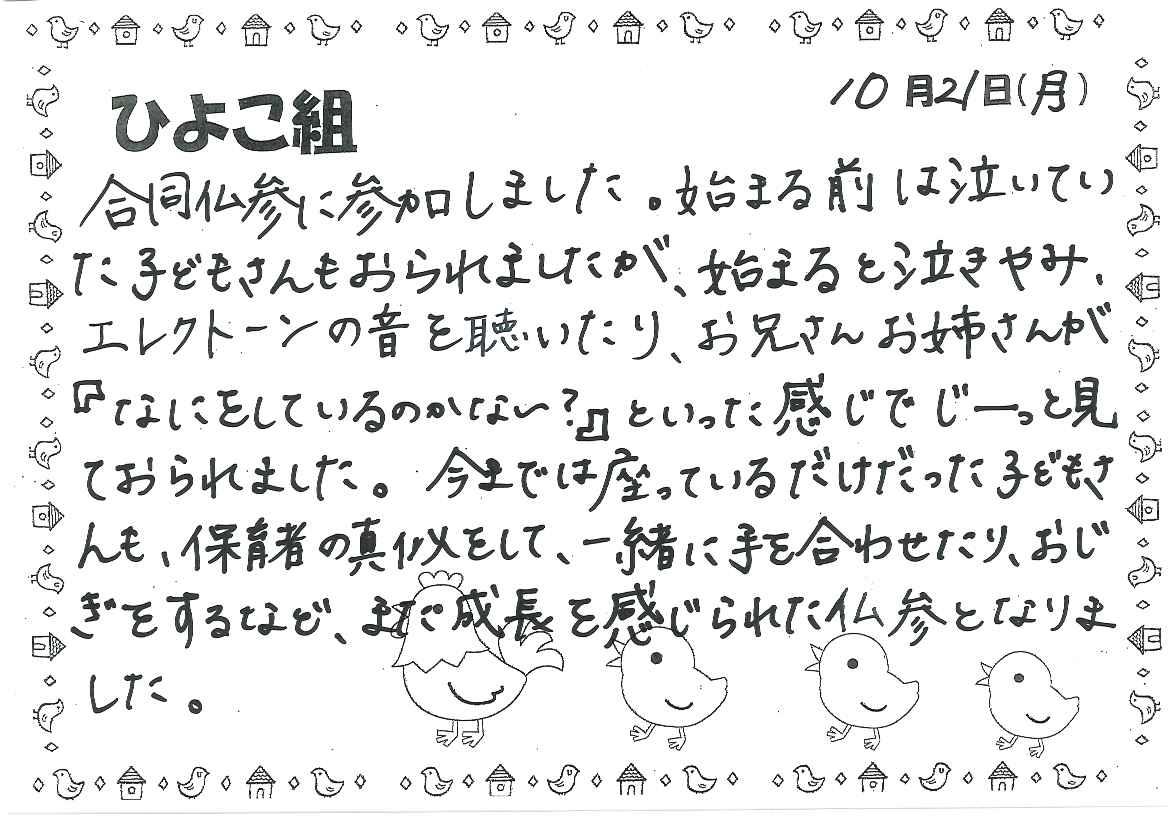 ひよこ組
10月21日(月)
合同仏参に参加しました。始まる前は泣いてい
た子どもさんもおられましたが、始まると泣きやみ、
エレクトーンの音を聴いたり、お兄さんお姉さんが
『なにをしているのかな〜?』といった感じでじーっと見
ておられました。今までは座っているだけだった子どもさ
んも、保育者の真似をして、一緒に手を合わせたり、おじ
ぎをするなど、また成長を感じられた仏参となりま
した。